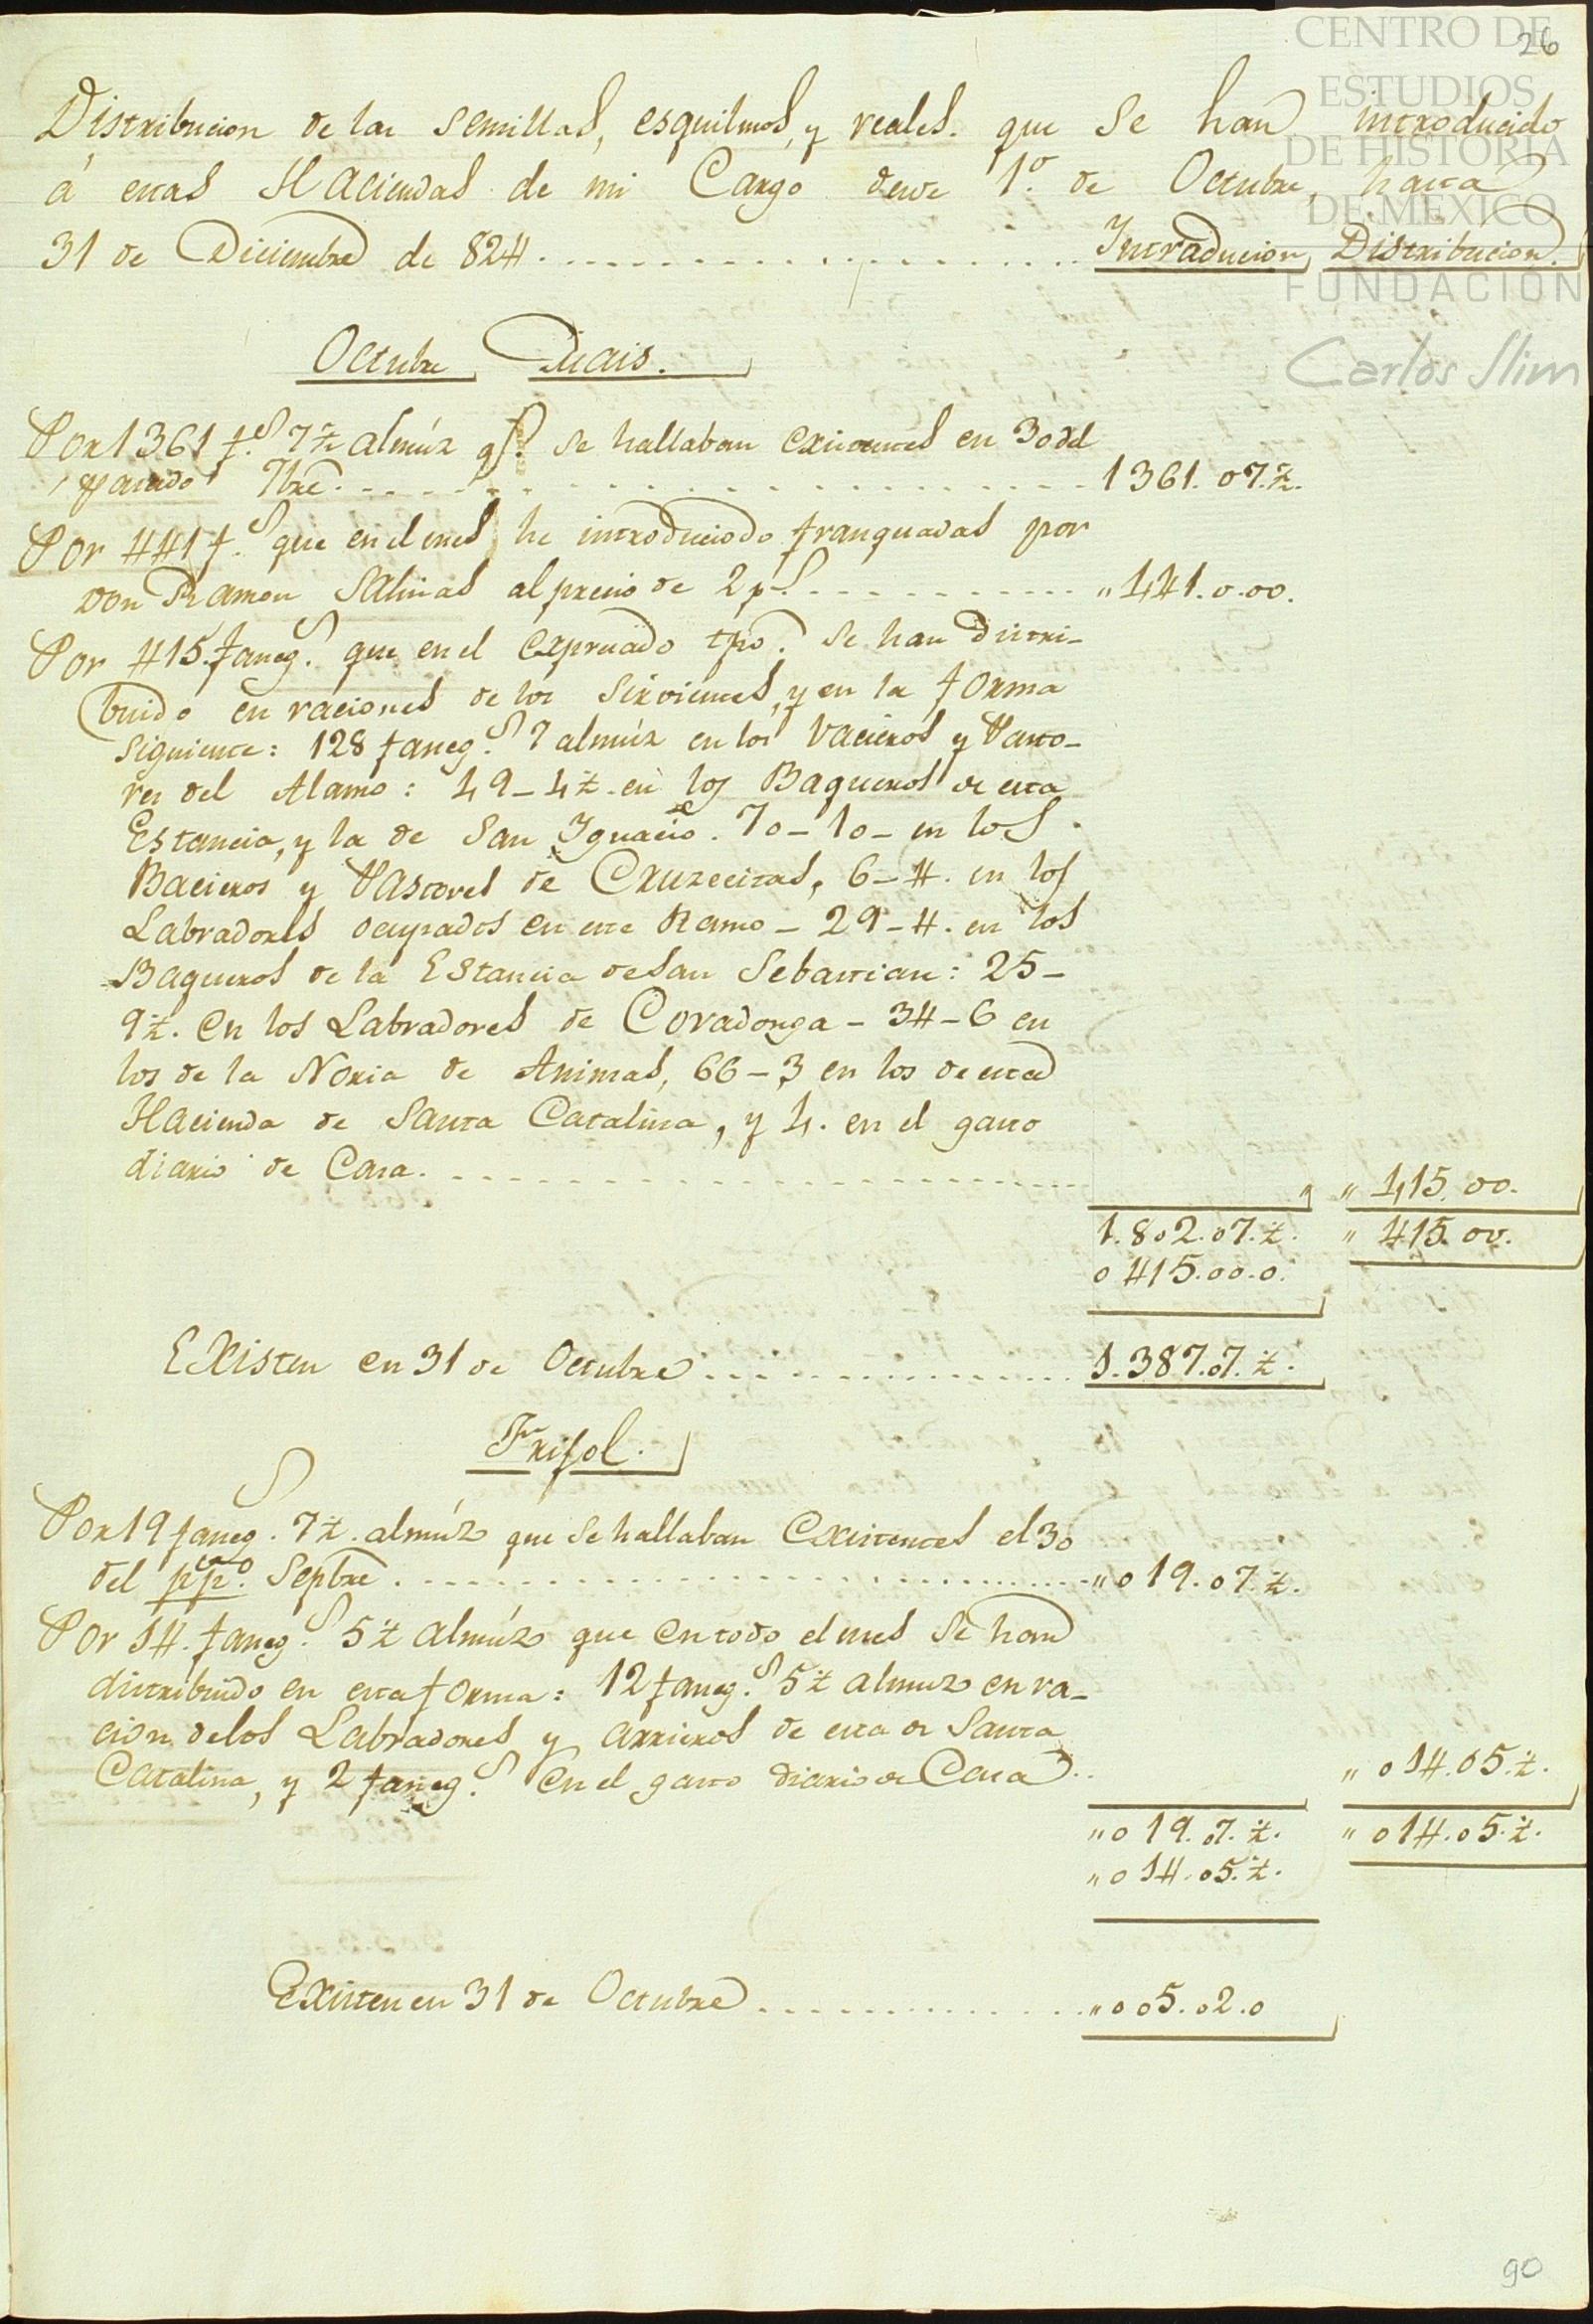 26
CENTRO DE
ESTUDIOS
DE HISTORIA
DE MEXICO
FUNDACIÓN
Carlos Slim
Distribucion de las semillas, esquilmos, y reales. que se han introducido
á estas Haciendas de mi Cargo desde 1.º de Octubre, hasta
31 de Diciembre de 824. Intraducion, Distribucion.
Octubre Mais.
Por 1361 f.s 7½ almúz q.e se hallaban existentes en 30 del
pasado 7bre. 1361. 07.½.
Por 441 f.s que en el mes he introduciodo franqueadas por
don Ramon Salinas al precio de 2 p.s " 441.0.00.
Por 415 faneg.s que en el expresado tpo. se han distri-
buido en raciones de los sirvientes, y en la forma
siguiente: 128 faneg.s 7 almúz en los Vacieros y Pasto-
res del Alamo: 49_4½. en los Baqueros de esta
Estancia, y la de San Ygnacio. 70_10_ en los
Bacieros y Pastores de Cruzecitas, 6_4. en los
Labradores ocupados en este Ramo _ 29_4. en los
Baqueros de la Estancia de San Sebastian: 25_
9½. en los Labradores de Covadonga _ 34_6 en
los de la Noria de Animas, 66_3 en los de esta
Hacienda de Santa Catalina, y 4. en el gasto
diario de Casa. " " 415.00.
1.802.07.½. " 415.00.
0415.00.0.
Existen en 31 de Octubre 1.387.07.½.
Frijol.
Por 19 faneg.s 7½. almúz que se hallaban existentes el 30
del pp.º Septbre. " 019.07.½.
Por 14. faneg.s 5½ almúz que en todo el mes se han
distribuido en esta forma: 12 faneg.s 5½ almuz en ra-
cion de los Labradores y arrieros de esta de Santa
Catalina, y 2 faneg.s en el gasto diario de Casa.. " 014.05.½.
" 019.07.½. " 014.05.½.
" 014.05.½.
Existen en 31 de Octubre " 005.02.0
90